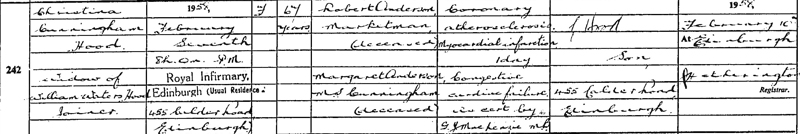 Christina 1958, F 67 Robert Anderson, Coronary 1958,
Cunningham February years Marketman, atherosclerosis J Hood February 10th
Hood Seventh (deceased) Myocardial infarction At Edinburgh
8h. 0m. P.M. 1 day Son,
242
Widow of Royal Infirmary, Margaret Anderson, Congestive
William Waters Hood Edinburgh (Usual Residence: M.S. Cunningham cardiac failure, 455 Calder Road Registrar.
Joiner. 455 Calder Road (deceased) as cert. by Edinburgh.
Edinburgh) Mackenzie M.B.